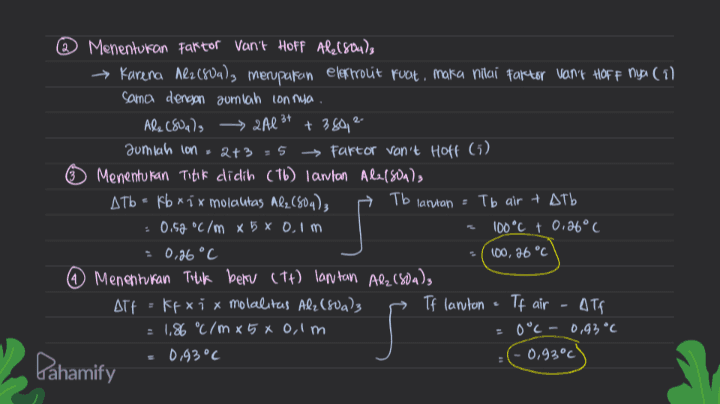 ② Menentukan Faktor Van't Hoff Al₂(SO₄)₃
→ Karena Al₂(SO₄)₃ merupakan elektrolit kuat, maka nilai faktor van't Hoff nya (i)
sama dengan jumlah ion nya.
Al₂(SO₄)₃ → 2Al³⁺ + 3SO₄²⁻
Jumlah ion = 2+3 = 5 → Faktor van't Hoff (i)
③ Menentukan Titik didih (Tb) larutan Al₂(SO₄)₃
ΔTb = Kb × i × molalitas Al₂(SO₄)₃
= 0,52 °C/m × 5 × 0,1 m
= 0,26 °C
Tb larutan = Tb air + ΔTb
= 100°C + 0,26°C
= 100,26 °C
④ Menentukan Titik beku (Tf) larutan Al₂(SO₄)₃
ΔTf = Kf × i × molalitas Al₂(SO₄)₃
= 1,86 °C/m × 5 × 0,1 m
= 0,93°C
Tf larutan = Tf air - ΔTf
= 0°C - 0,93 °C
= - 0,93°C
Pahamify